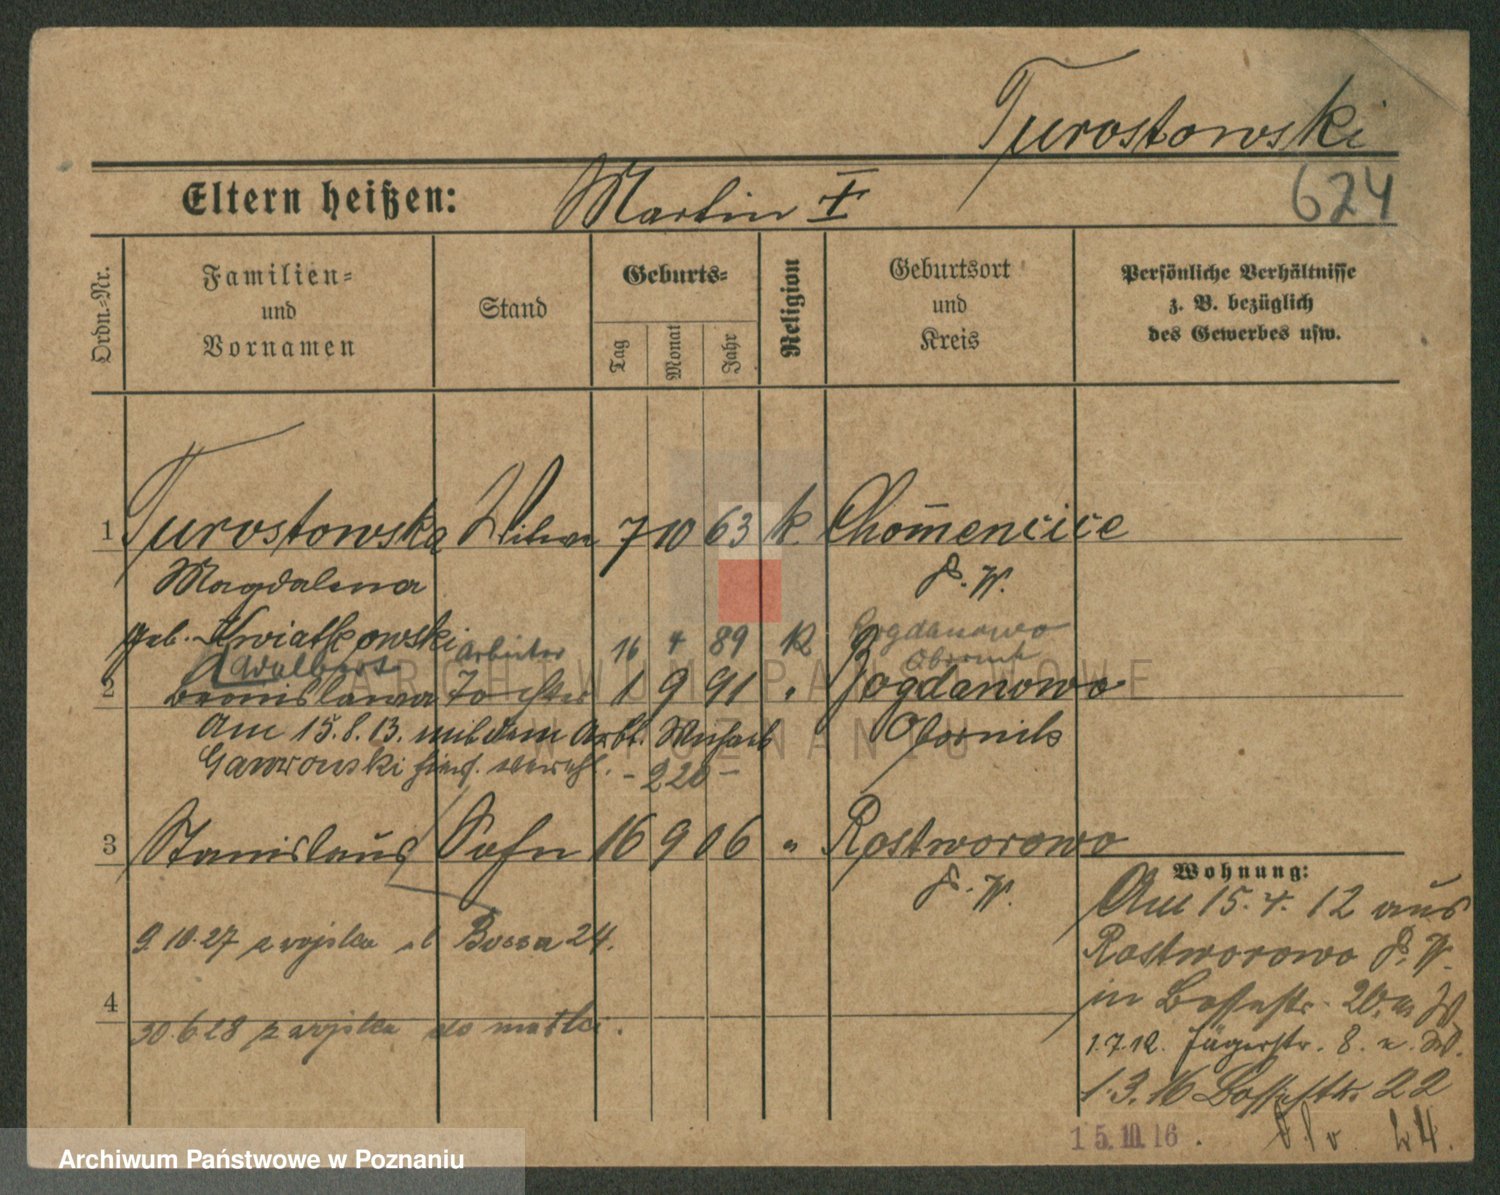 Turostowski
624
Eltern heißen: Martin †
Ordn.-Nr.
Familien- und Vornamen
Stand
Geburts-
Tag
Monat
Jahr
Religion
Geburtsort und Kreis
Persönliche Verhältnisse z. B. bezüglich des Gewerbes usw.
1 Turostowska Witwe 7 10 63 k. Chom̄encice
Magdalena P. W.
geb. Kwiatkowski
Arbeiter 16 4 89 k Bogdanowo
Obornik
2 Bronislawa Tochter 1 9 91 " Bogdanowo
Am 15.8.13. mit dem Arbt. Obornik
Gawronski hier verehl. - 220 -
3 Stanislaus Sohn 16 9 06 " Rostworowo
P. W.
9.10.27 z wojska Bossa 24.
4
30.6.28 z wojska do matki.
Wohnung:
Am 15.4.12 aus
Rostworowo P. W.
in 20
1.7.12. Jägerstr. 8.
1.3.16 22
15.10.16.
24.
ARCHIWUM PAŃSTWOWE
W POZNANIU
Archiwum Państwowe w Poznaniu